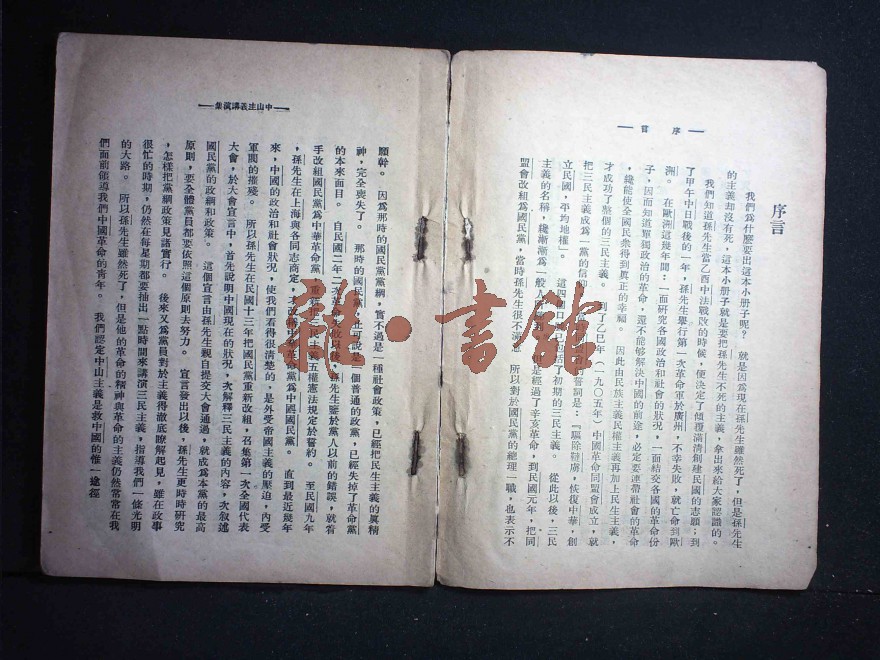 序言
序言
我們為什麼要出這本小册子呢？就是因為現在孫先生雖然死了，但是孫先生
的主義却沒有死，這本小册子就是要把孫先生不死的主義，拿出來給大家認識的。
我們知道孫先生當乙酉中法戰敗的時候，便決定了傾覆滿清創建民國的志願；到
了甲午中日戰後的一年，孫先生舉行第一次革命軍於廣州，不幸失敗，就亡命到歐
洲。在歐洲這幾年間：一面研究各國政治和社會的狀況，一面結交各國的革命份
子，因而知道單獨政治的革命，還不能够解決中國的前途，必定要連帶社會的革命
，纔能使全國民衆得到眞正的幸福。因此由民族主義民權主義再加上民生主義，
才成功了整個的三民主義。到了乙巳年（一九〇五年）中國革命同盟會成立，就
把三民主義成為一黨的信仰，誓詞是：『驅除韃虜，恢復中華，創
立民國，平均地權。』這四口已包括了初期的三民主義。從此以後，三民
主義的名稱，纔漸漸為一般人是經過了辛亥革命，到民國元年，把同
盟會改組為國民黨，當時孫先生很不滿意，所以對於國民黨的總理一職，也表示不
中山主義講演集
願幹。因為那時的國民黨黨綱，實不過是一種社會政策，已經把民生主義的眞精
神，完全喪失了。那時的國民黨，止可說是一個普通的政黨，已經失掉了革命黨
的本來面目。自民國二年二次革命失敗以後，孫先生鑒於黨人以前的錯誤，就着
手改組國民黨為中華革命黨，重新把三民主義五權憲法規定於誓約。至民國九年
，孫先生在上海與各同志商定，才改稱中華革命黨為中國國民黨。直到最近幾年
來，中國的政治和社會狀況，使我們看得很清楚的，是外受帝國主義的壓迫，內受
軍閥的摧殘。所以孫先生在民國十三年把國民黨重新改組，召集第一次全國代表
大會，於大會宣言中，首先說明中國現在的狀況，次解釋三民主義的內容，次叙述
國民黨的政綱和政策。這個宣言由孫先生親自提交大會通過，就成為本黨的最高
原則，要全體黨員都要依照這個原則去努力。宣言發出以後，孫先生更時時研究
，怎樣把黨綱政策見諸實行。後來又為黨員對於主義得澈底瞭解起見，雖在政事
很忙的時期，仍然在每星期都要抽出一點時間來講演三民主義，指導我們一條光明
的大路。所以孫先生雖然死了，但是他的革命的精神與革命的主義仍然常常在我
們面前領導我們中國革命的靑年。我們認定中山主義是救中國的惟一途徑
龍·書館